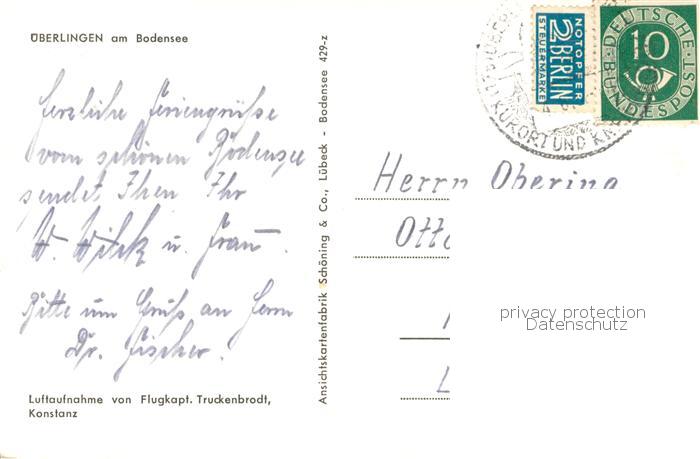 ÜBERLINGEN am Bodensee
Herzliche Feriengrüße
vom schönen Bodensee
sendet Ihnen Ihr
W. Wilck u. Frau.
Bitte um Gruß an Herrn
Dr. Fischer.
Luftaufnahme von Flugkapt. Truckenbrodt,
Konstanz
Ansichtskartenfabrik Schöning & Co., Lübeck - Bodensee 429-z
NOTOPFER
2 BERLIN
STEUERMARKE
DEUTSCHE
10
BUNDESPOST
KURORT UND
Herrn Obering.
Otto
privacy protection
Datenschutz